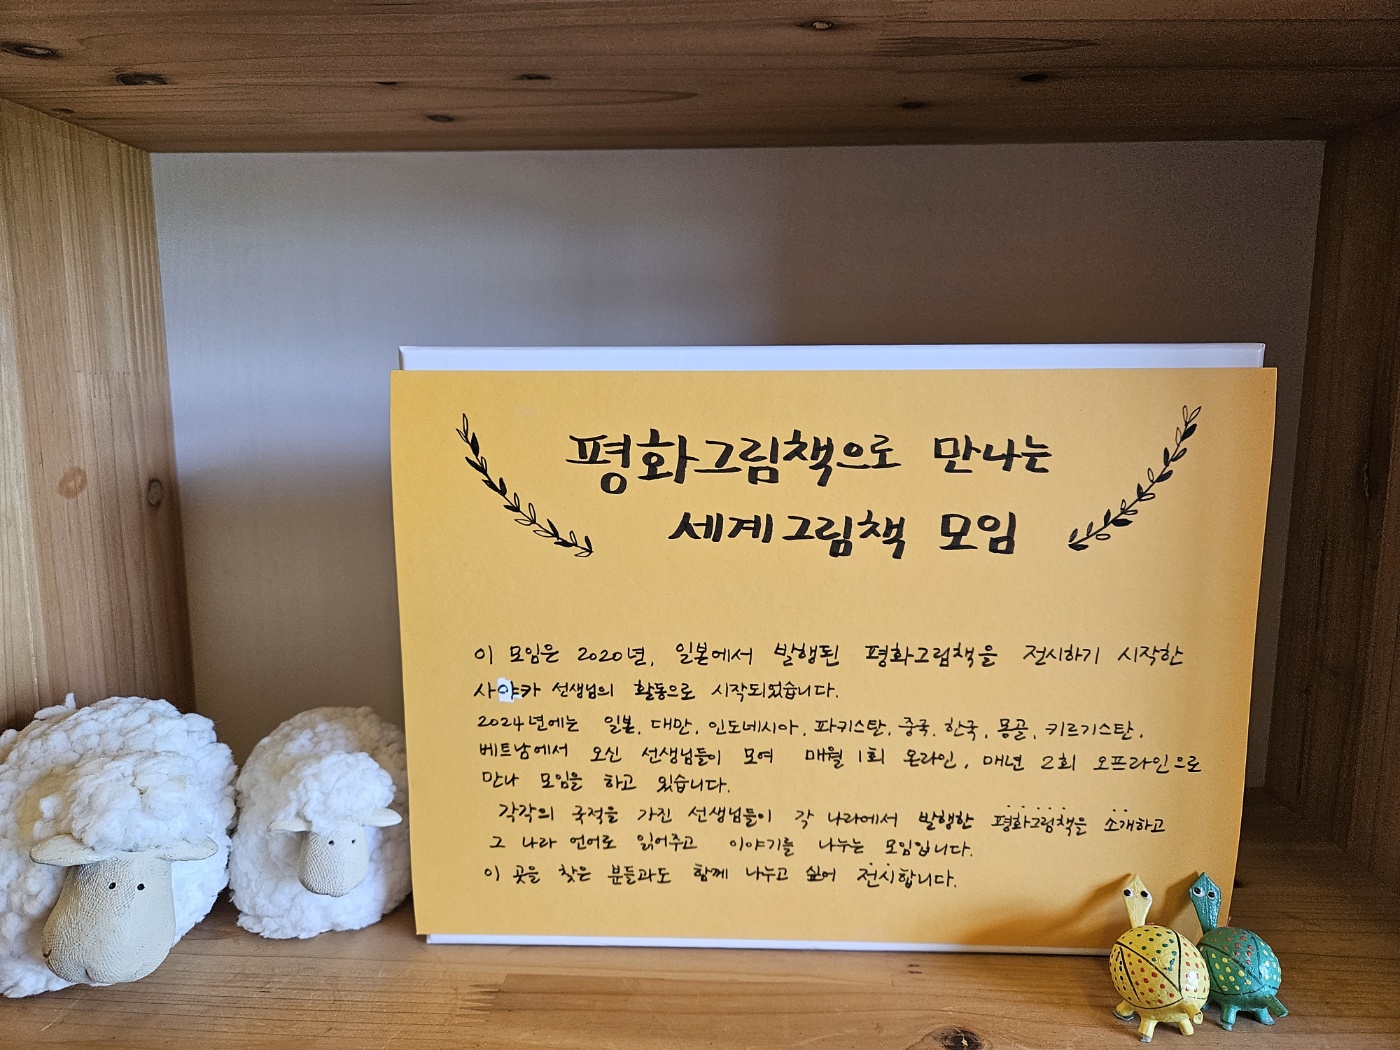 평화그림책으로 만나는
세계그림책 모임
이 모임은 2020년, 일본에서 발행된 평화그림책을 전시하기 시작한
사야카 선생님의 활동으로 시작되었습니다.
2024년에는 일본, 대만, 인도네시아, 파키스탄, 중국, 한국, 몽골, 키르기스탄,
베트남에서 오신 선생님들이 모여 매월 1회 온라인, 매년 2회 오프라인으로
만나 모임을 하고 있습니다.
각각의 국적을 가진 선생님들이 각 나라에서 발행한 평화그림책을 소개하고
그 나라 언어로 읽어주고 이야기를 나누는 모임입니다.
이 곳을 찾은 분들과도 함께 나누고 싶어 전시합니다.